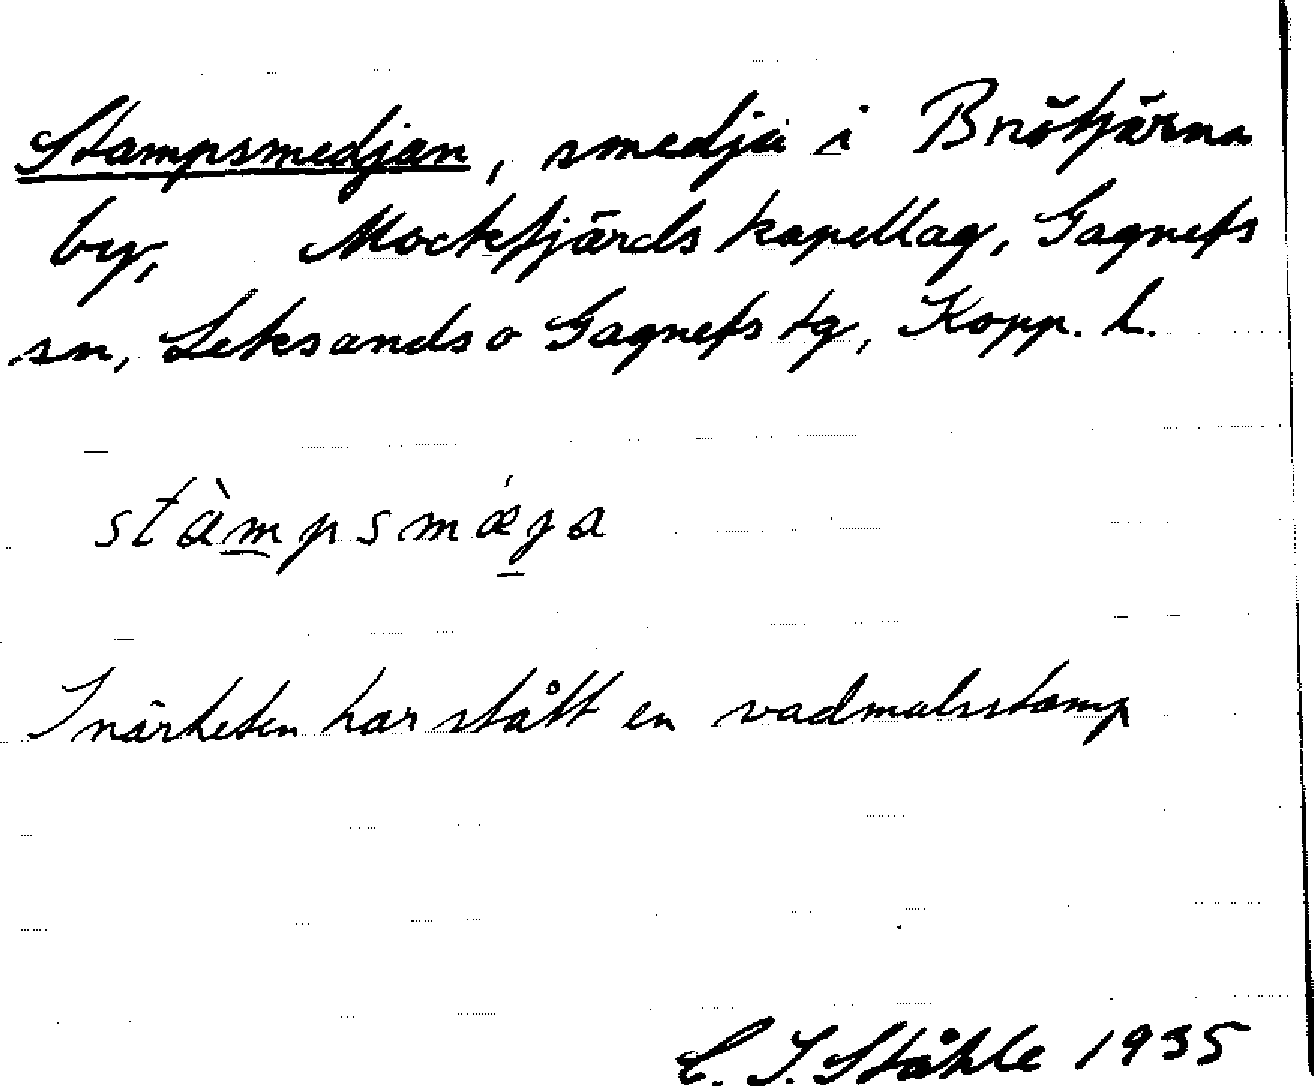 Stampsmedjan, smedja i Brötjärna
by, Mockfjärds kapellag, Gagnefs
sn, Leksands o Gagnefs tg, Kopp. l.
stàmpsmǽja
I närheten har stått en vadmalsstamp
C. I. Ståhle 1935